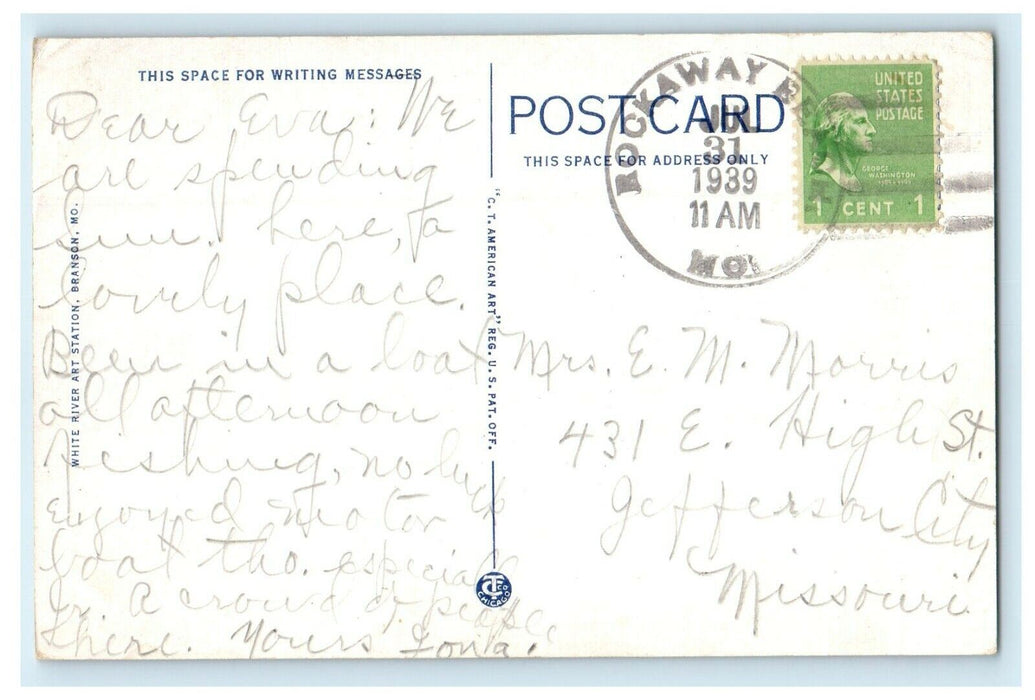 THIS SPACE FOR WRITING MESSAGES
Dear Eva: We
are spending
Sun. here, a
lovely place.
Been in a boat
all afternoon
fishing, no luck
Enjoyed motor
boat tho. especially
Jr. A crowd of people
there. Yours Iona.
WHITE RIVER ART STATION, BRANSON, MO.
"C. T. AMERICAN ART" REG. U. S. PAT. OFF.
CT CO
CHICAGO
POST CARD
THIS SPACE FOR ADDRESS ONLY
ROCKAWAY BEACH
JUL
31
1939
11 AM
MO.
UNITED
STATES
POSTAGE
GEORGE
WASHINGTON
1 CENT 1
Mrs. E. M. Morris
431 E. High St.
Jefferson City
Missouri